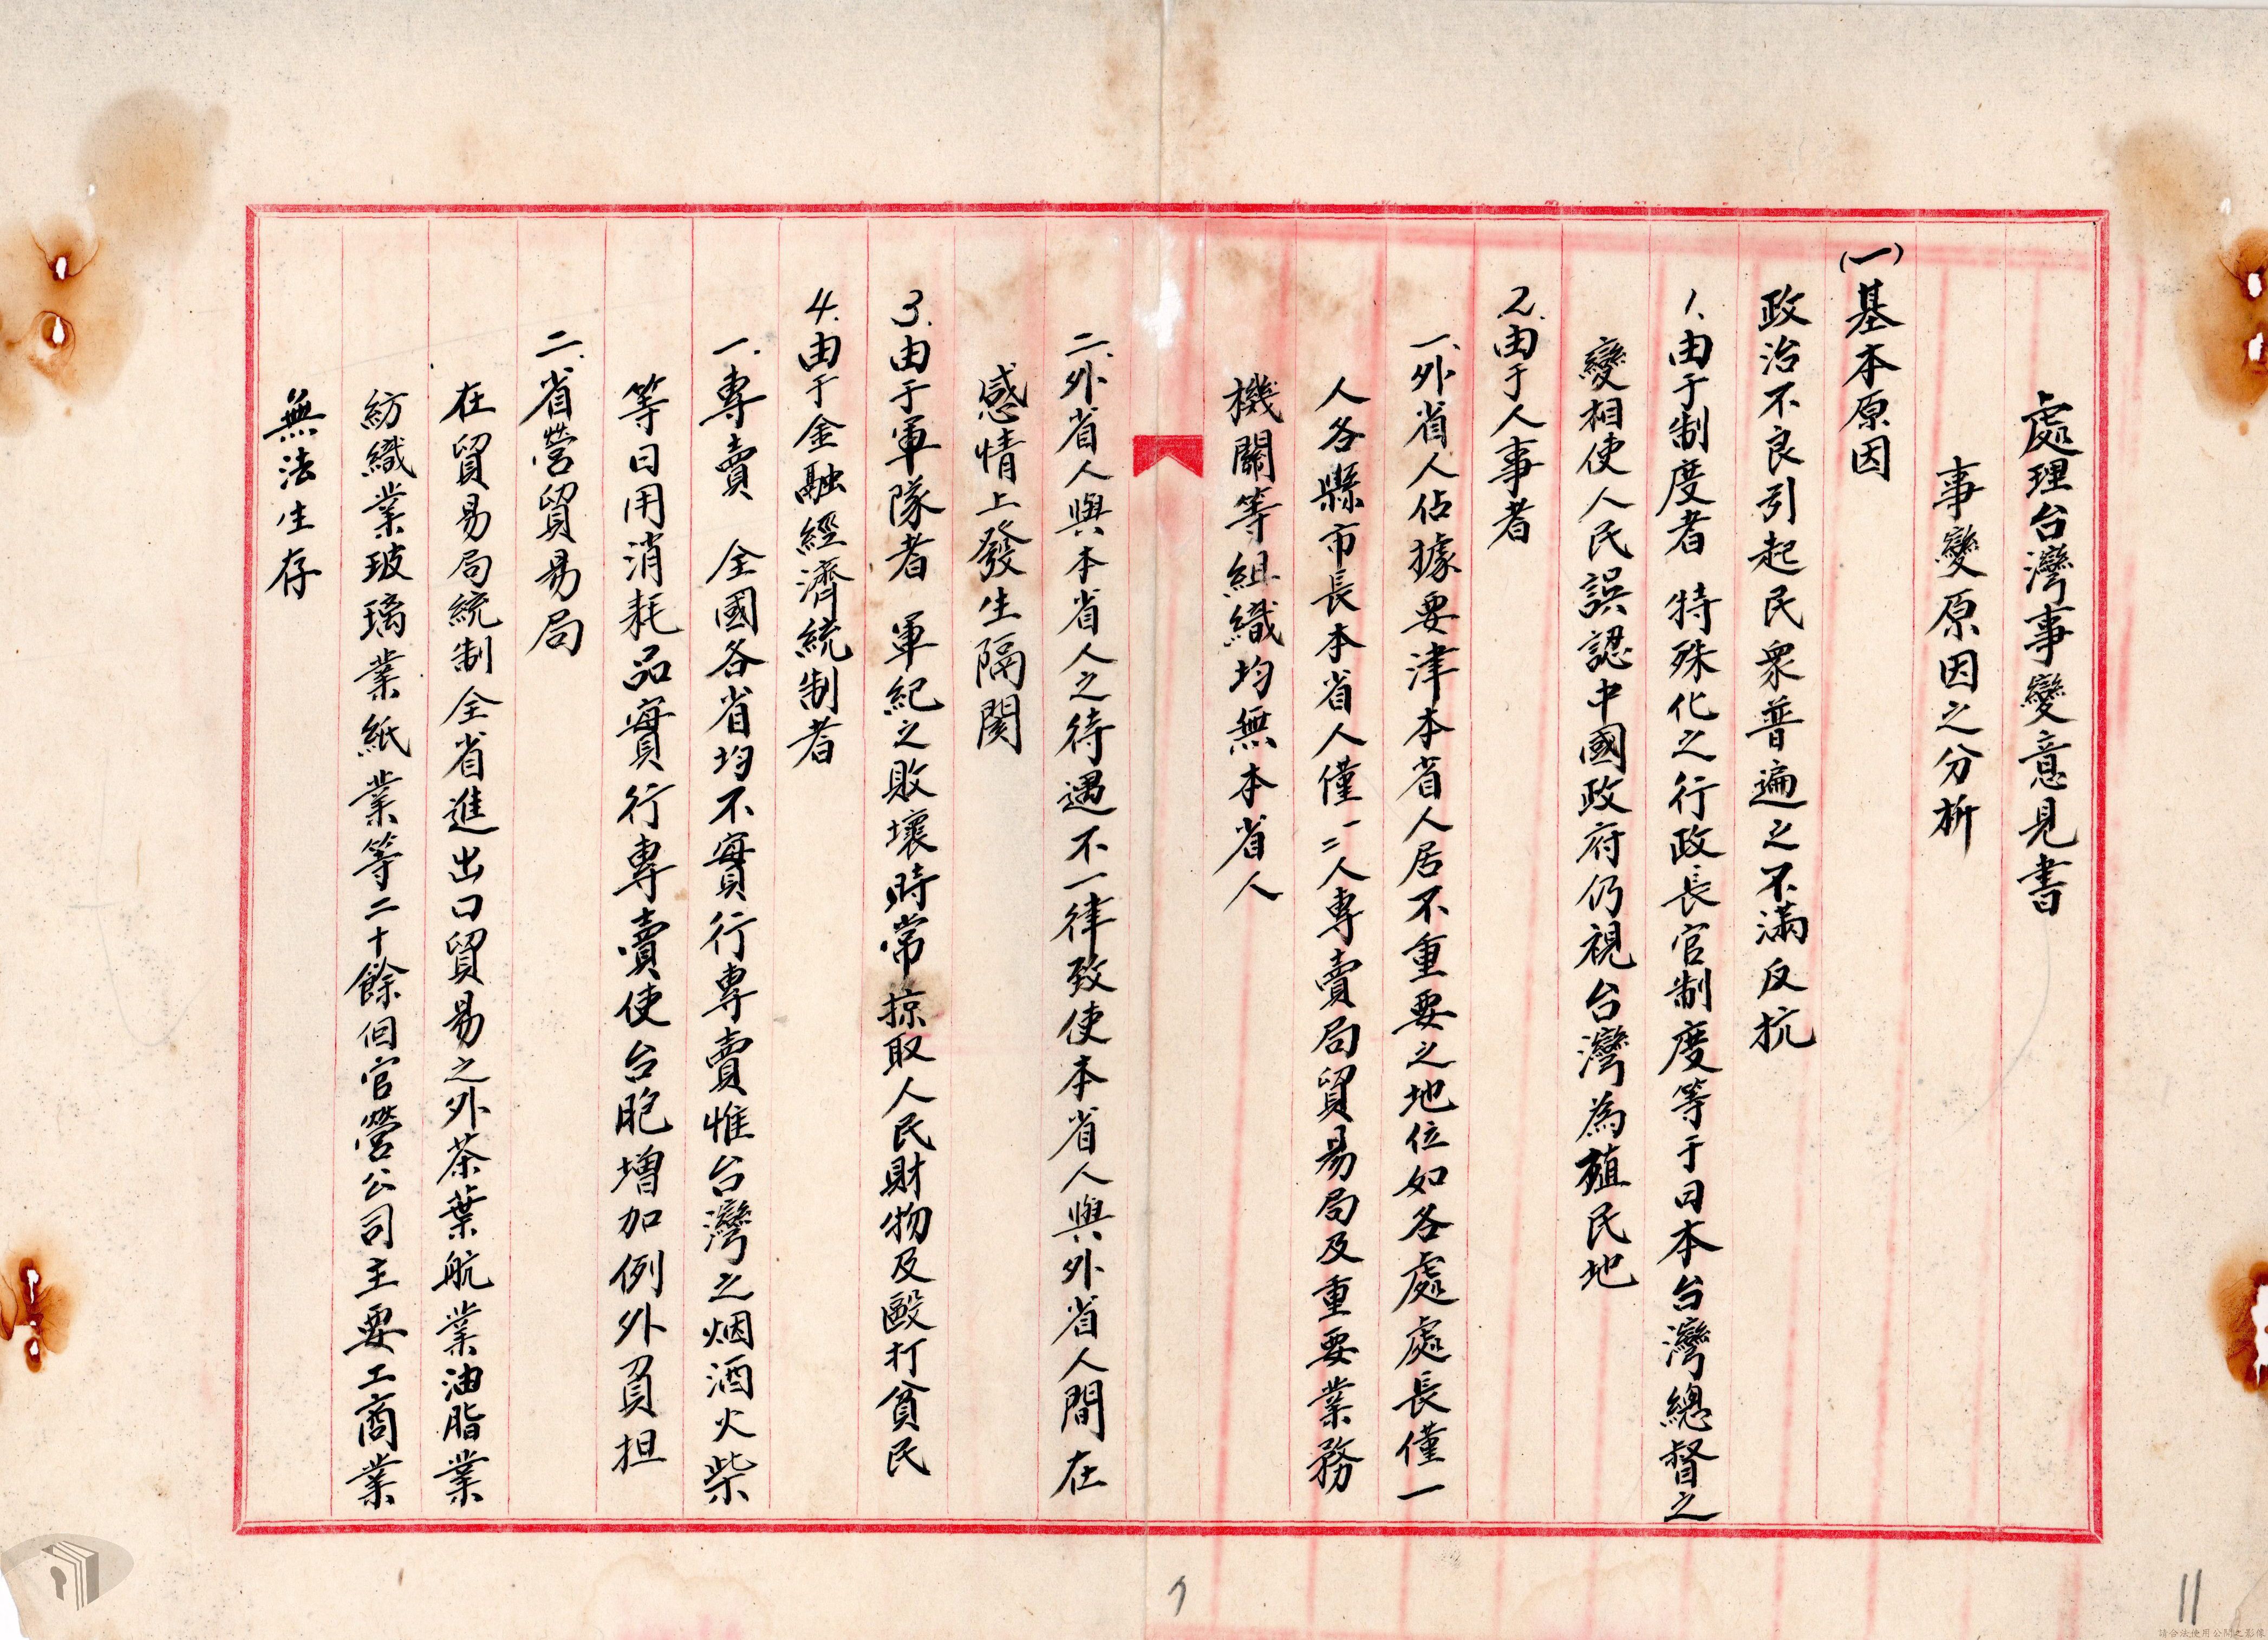 處理台灣事變意見書
事變原因之分析
(一)基本原因
政治不良引起民衆普遍之不滿反抗
1.由于制度者 特殊化之行政長官制度等于日本台灣總督之
變相使人民誤認中國政府仍視台灣為殖民地
2.由于人事者
一.外省人佔據要津本省人居不重要之地位如各處處長僅一
人各縣市長本省人僅一二人專賣局貿易局及重要業務
機關等組織均無本省人
二.外省人與本省人之待遇不一律致使本省人與外省人間在
感情上發生隔閡
3.由于軍隊者 軍紀之敗壞時常掠取人民財物及毆打貧民
4.由于金融經濟統制者
一.專賣 全國各省均不實行專賣惟台灣之烟酒火柴
等日用消耗品實行專賣使台胞增加例外負担
二.省營貿易局
在貿易局統制全省進出口貿易之外茶葉航業油脂業
紡織業玻璃業紙業等二十餘個官營公司主要工商業
無法生存
11
請合法使用公開之影像